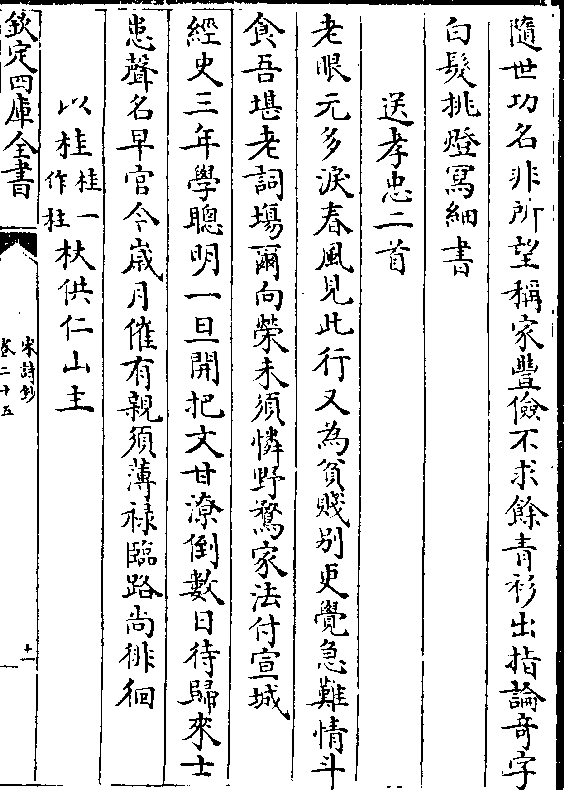 隨世功名非所望稱家豐儉不求餘青衫出指論竒字
白髮挑燈寫細書
送孝忠二首
老眼元多淚春風見此行又為貧賤别更覺急難情斗
食吾堪老詞塲爾向榮未須憐野鶩家法付宣城
經史三年學聰明一旦開把文甘潦倒數日待歸來士
患聲名早官令嵗月催有親須薄禄臨路尚徘徊
以桂桂一作柱杖供仁山主
欽定四庫全書
宋詩鈔
卷二十五
十一